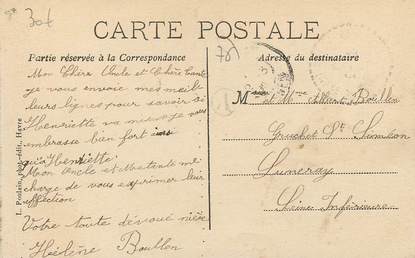 30f
CARTE POSTALE
Partie réservée à la Correspondance
Adresse du destinataire
Mon Chère Oncle et Chère Tante
je vous envoie mes meilleurs
leurs lignes pour savoir si
Henriette va mieux je vous
embrasse bien fort ainsi
qu'a Henriette
Mon Oncle et Matante me
charge de vous exprimer leur
affection
Votre toute dévoué nièce
Hélène Boullen
Monsieur et Mme Boullen
Gruchet St Siméon
Luneray
Seine Inférieure
L. Poulain, phot.-édit., Havre